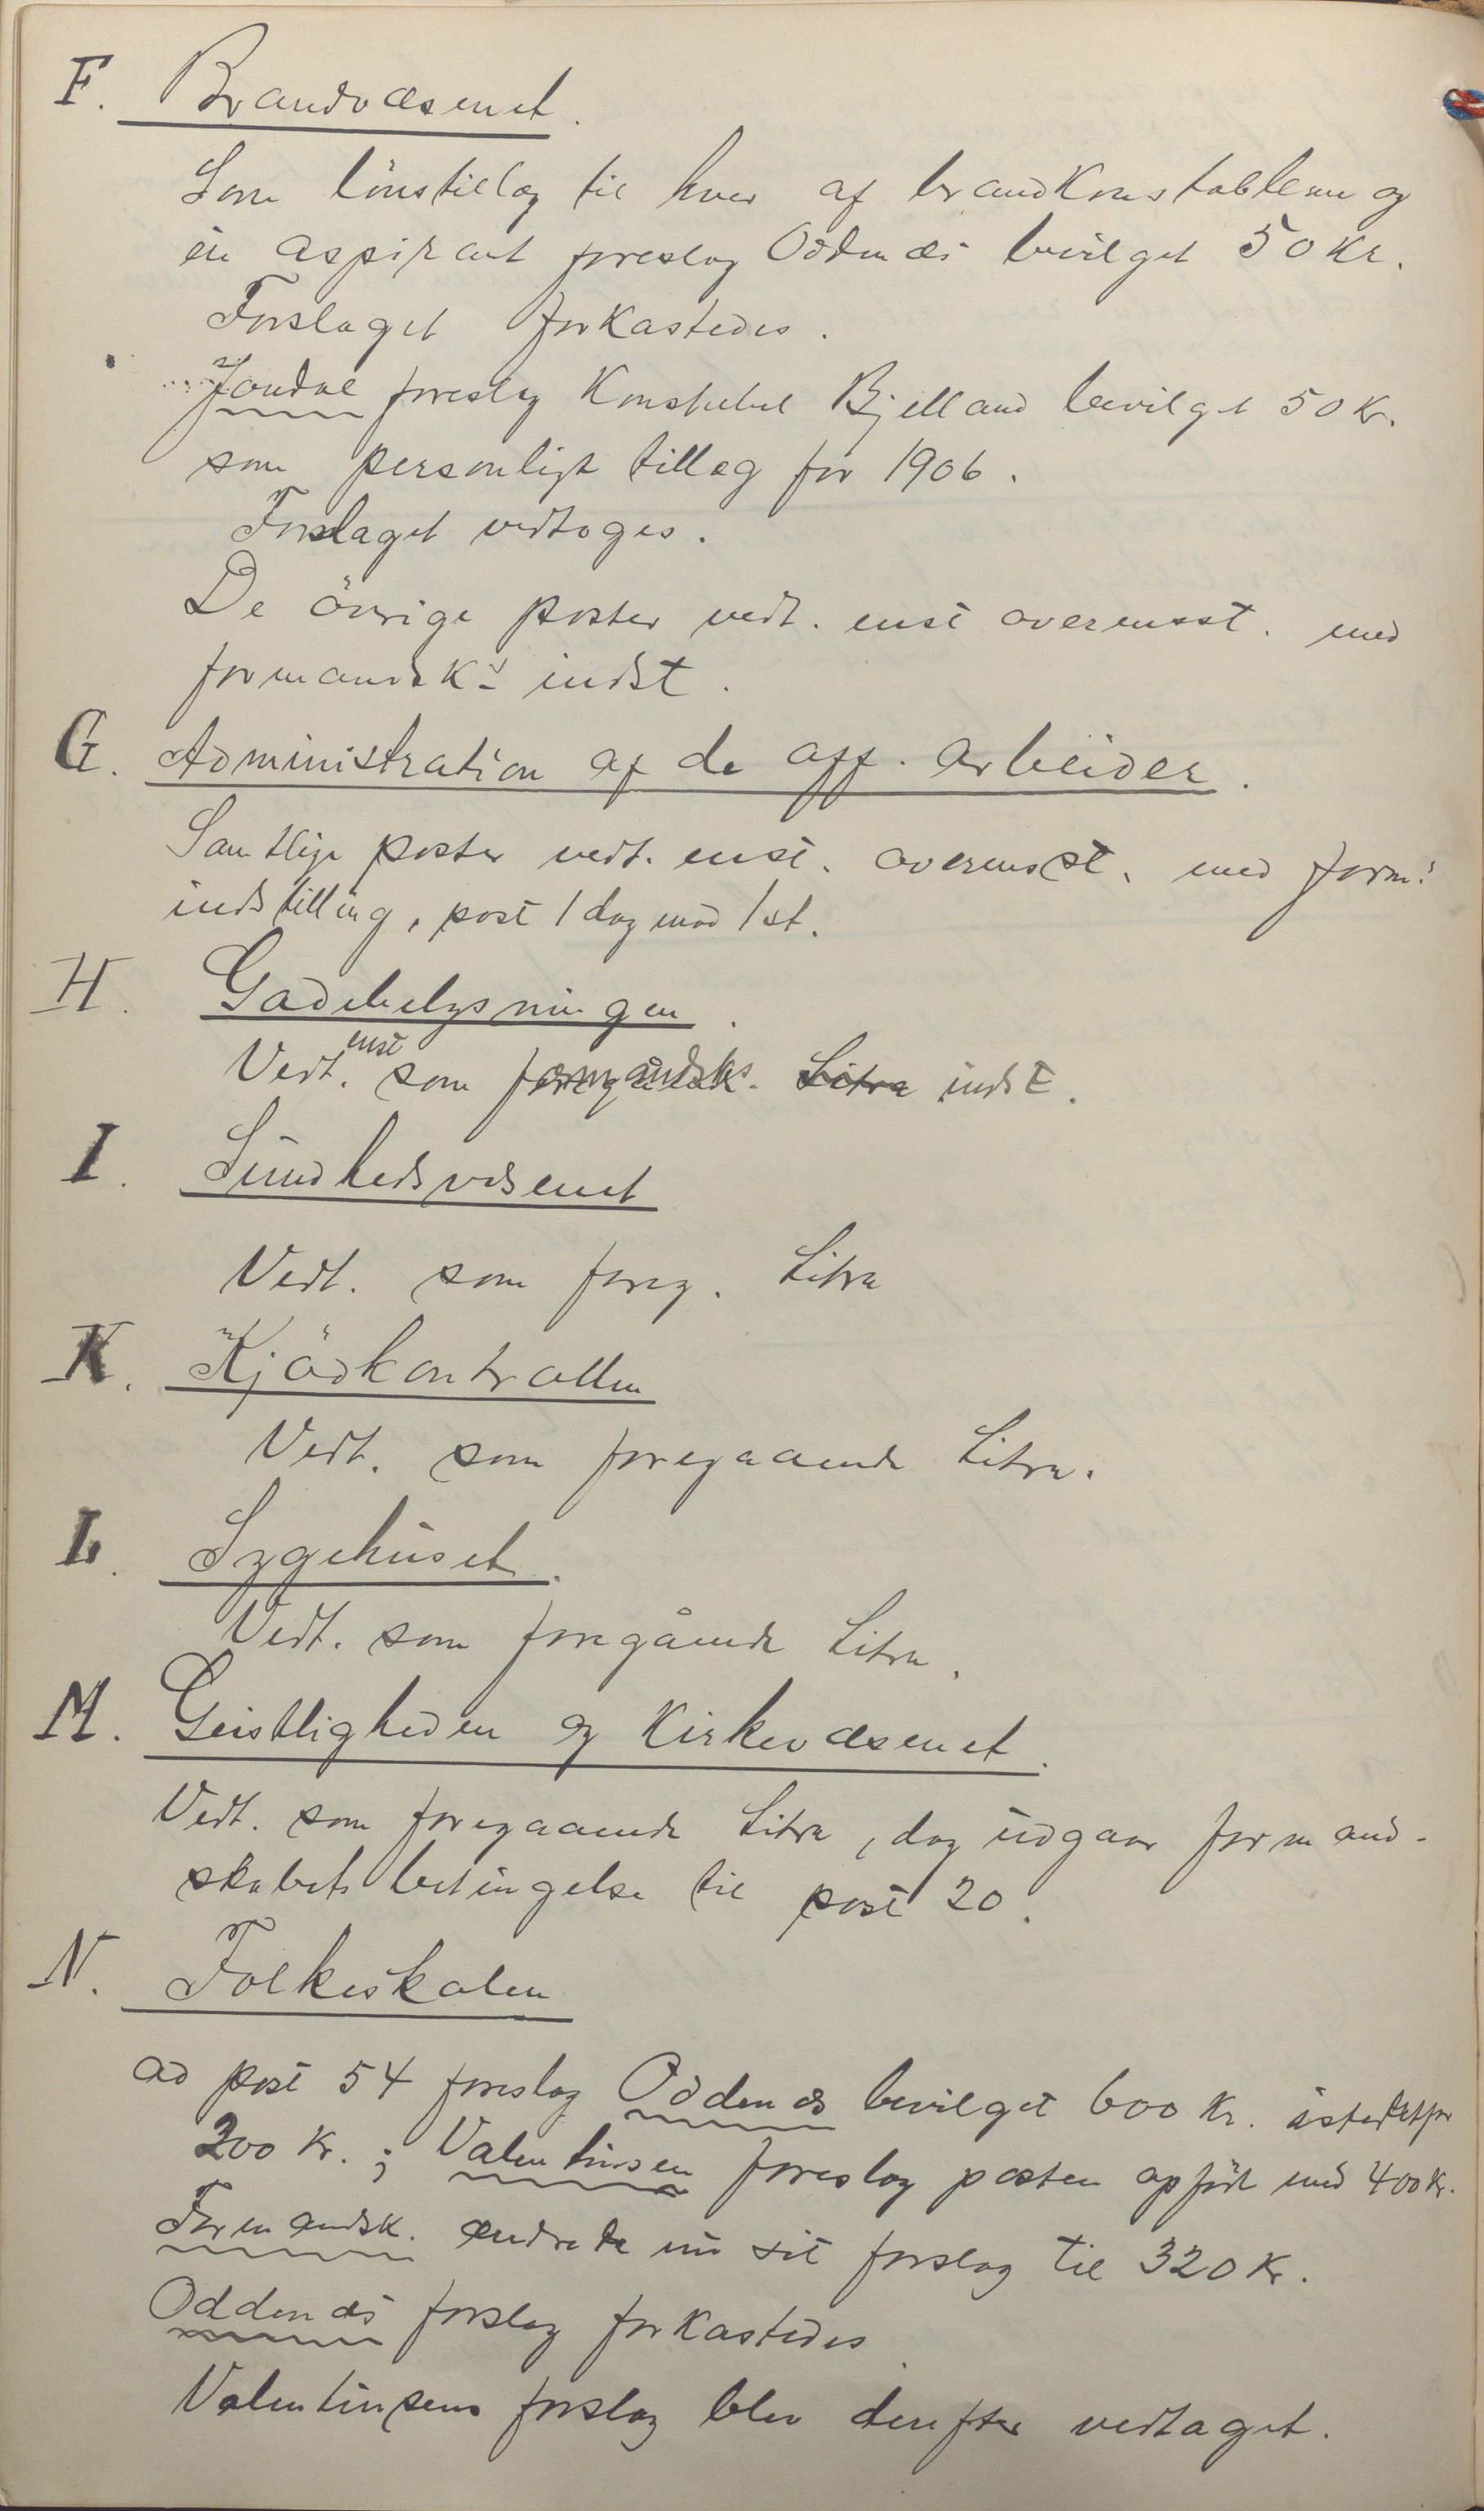 F. Brandvæsenet.
Som lönstillæg til hver af brandkonstablene og
en aspirant foreslog Oddenæs bevilget 50 kr.
Forslaget forkastedes.
Jondal foreslog Konstabel Bjelland bevilget 50 kr.
som personligt tillæg for 1906.
Forslaget vedtoges.
De övrige poster vedt. enst overensst. med
formandsks indst.
G. Administration af de off. arbeider.
Samtlige poster vedt. enst. overensst. med form.s
indstilling, post 1 dog mod 1 st.
H. Gadebelysningen.
enst
Vedt. som formandsks. Litra indst.
I. Sundhedsvæsenet
Vedt. som foreg. Litra
K. Kjödkontrollen
Vedt. som foregaaende Litra.
L. Sygehuset.
Vedt. som foregående Litra.
M. Geistligheden og Kirkevæsenet.
Vedt. som foregaaende Litra, dog udgaar formand-
skabets betingelse til post 20.
N. Folkeskolen
ad post 54 foreslog Oddenæs bevilget 600 kr. istedetfor
200 kr.; Valentinsen foreslog posten opfört med 400 kr.
Formandsk. ændrede nu sit forslag til 320 kr.
Oddenæs forslag forkastedes.
Valentinsens forslag blev derefter vedtaget.